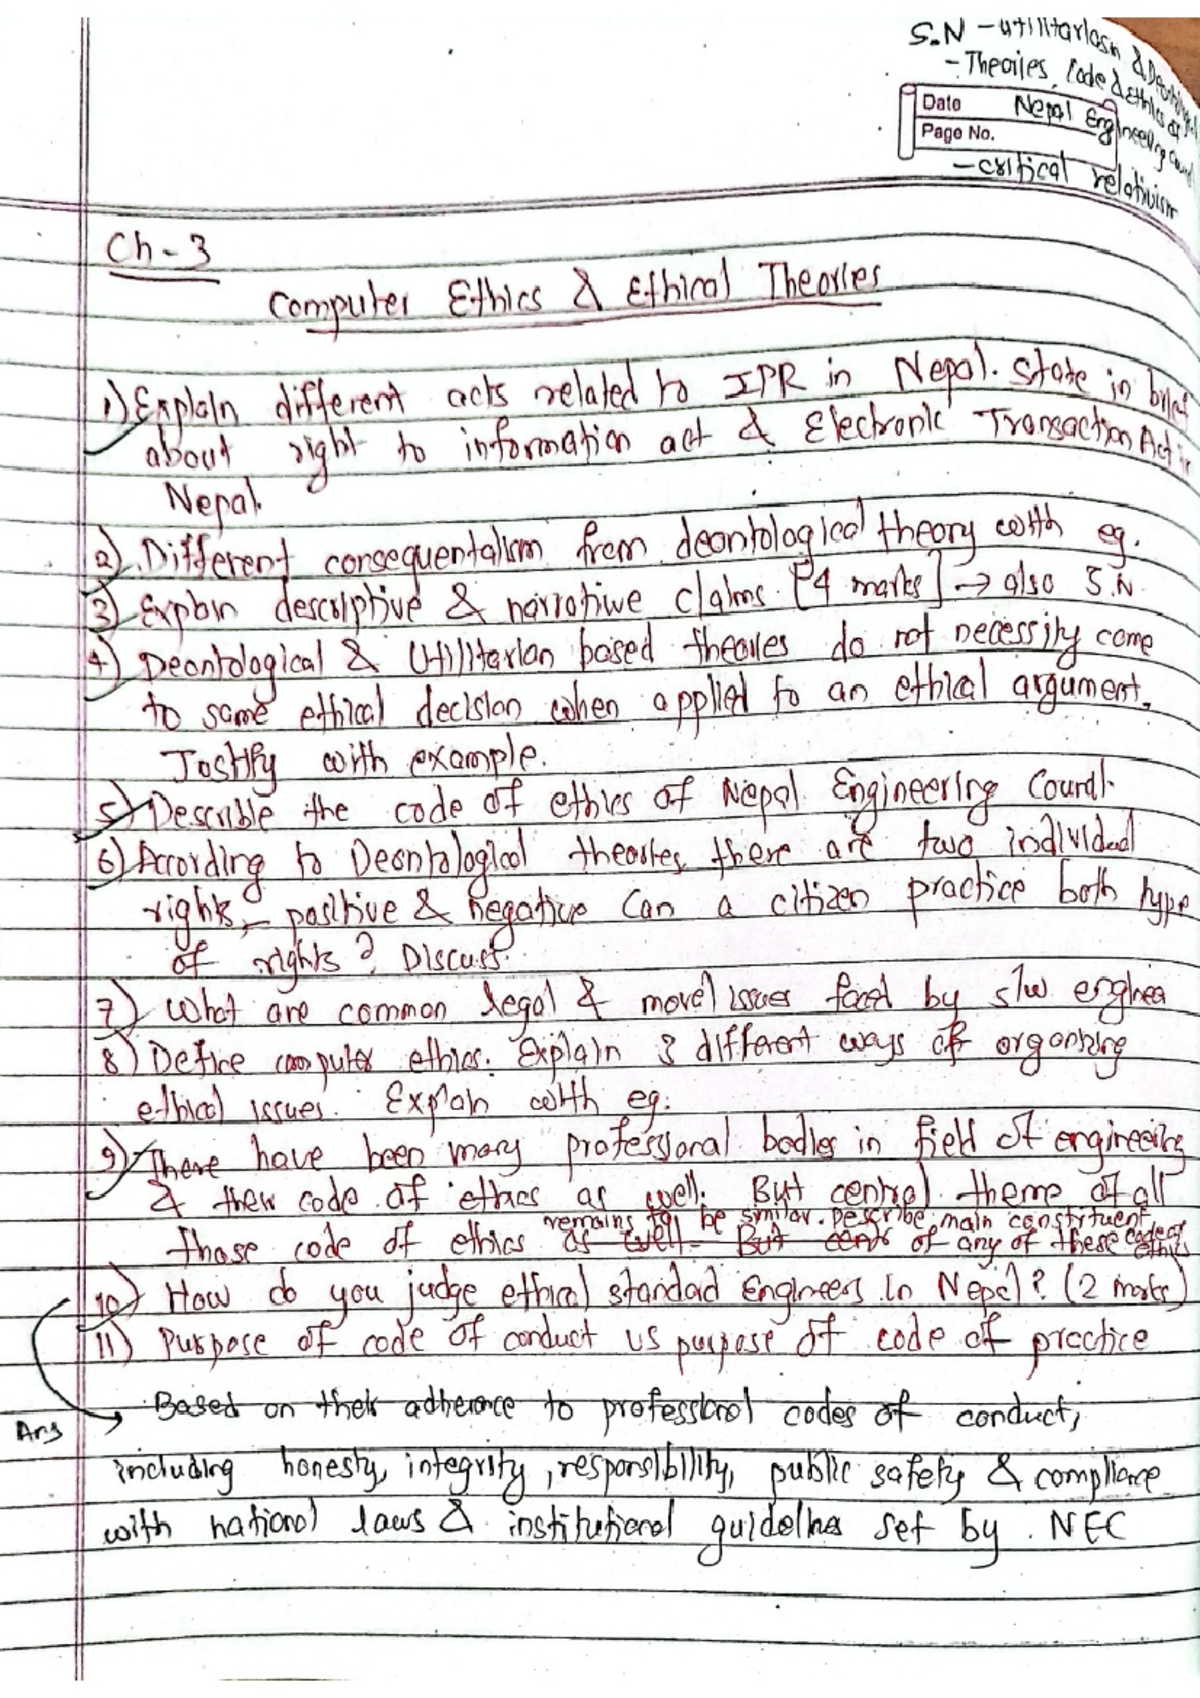 S.N - Utilitarian & Deontological
- Theories, Code & Ethics of
Date Nepal Engineering
Page No.
- critical relativism
Ch - 3
Computer Ethics & Ethical Theories
1) Explain different acts related to IPR in Nepal. State in brief
about right to information act & Electronic Transaction Act in
Nepal.
2) Different consequentalism from deontological theory with eg.
3) Explain descriptive & narrative claims. [4 marks] → also S.N.
4) Deontological & Utilitarian based theories do not necessity come
to same ethical decision when applied to an ethical argument.
Jostify with example.
5) Describle the code of ethics of Nepal Engineering Council.
6) According to Deontological theories, there are two individual
rights, positive & negative Can a citizen practice both type
of rights? Discuss.
7) What are common legal & moral issues faced by s/w enginea
8) Define computer ethics. Explain 3 different ways of organizing
ethical issues. Explain with eg.
9) There have been many professional bodies in field of engineering
& their code of ethics as well. But central theme of all
remains to be similar. Describe main constituent
those code of ethics as well. But of any of these codes of ethics
10) How do you judge ethical standard Engineers in Nepal? (2 marks)
11) Purpose of code of conduct vs purpose of code of practice
Ans → Based on their adherence to professional codes of conduct,
including honesty, integrity, responsibility, public safety & compliance
with national laws & institutional guidelines set by. NEC